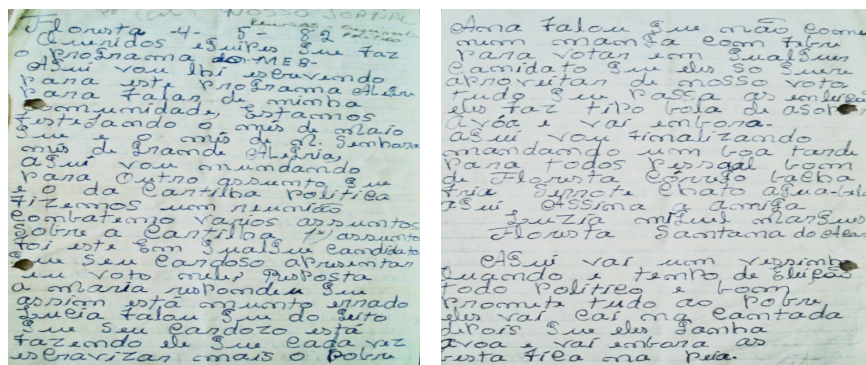 NOSSO JORNAL
Floresta -4- 5- 82
Queridos equipes que faz
o programa do MEB-
Aqui vou lhi escrevendo
para este programa Alegre
para falar de minha
comunidade, Estamos
festejando o mês de maio
que e o mês de N. Senhora
mês de grande Alegria,
aqui vou mundando
para outro assunto que
e o da Cartilha Politica
Fizemos um reunião
combatemo varios assuntos
sobre a Cartilha 1º assunto
foi este Em qualque candidato
que seu Cardoso apresentar
eu voto meus Resposta
a maria respondeu que
assim está munto errado
Lucia falou que do geito
que seu Cardozo está
fazendo ele que cada vez
escravizar mais o pobre

Ana falou que não come
num manga com febre
para votar em qualquer
candidato que eles so quere
aproveitar de nosso voto
tudo que passa as enleição
eles faz tipo bola de asopra
avoa e vai embora.
aqui vou finalizando
mandando um boa tarde
para todos pessoal bom
de Floresta Córrego
fria Serrote Chato agua-bela
aqui Assina a amiga
Luzia miguel marques
Floresta Santana do Acaraú

Aqui vai um verssinho
Quando e tempo de Eleição
todo Politico e boom
promete tudo ao pobre
eles vai cai na cantada
depois que eles ganha
avoa e vai embora as
testa fica na peia.